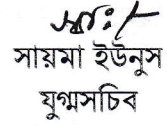 স্বাঃ/-
সায়মা ইউনুস
যুগ্মসচিব